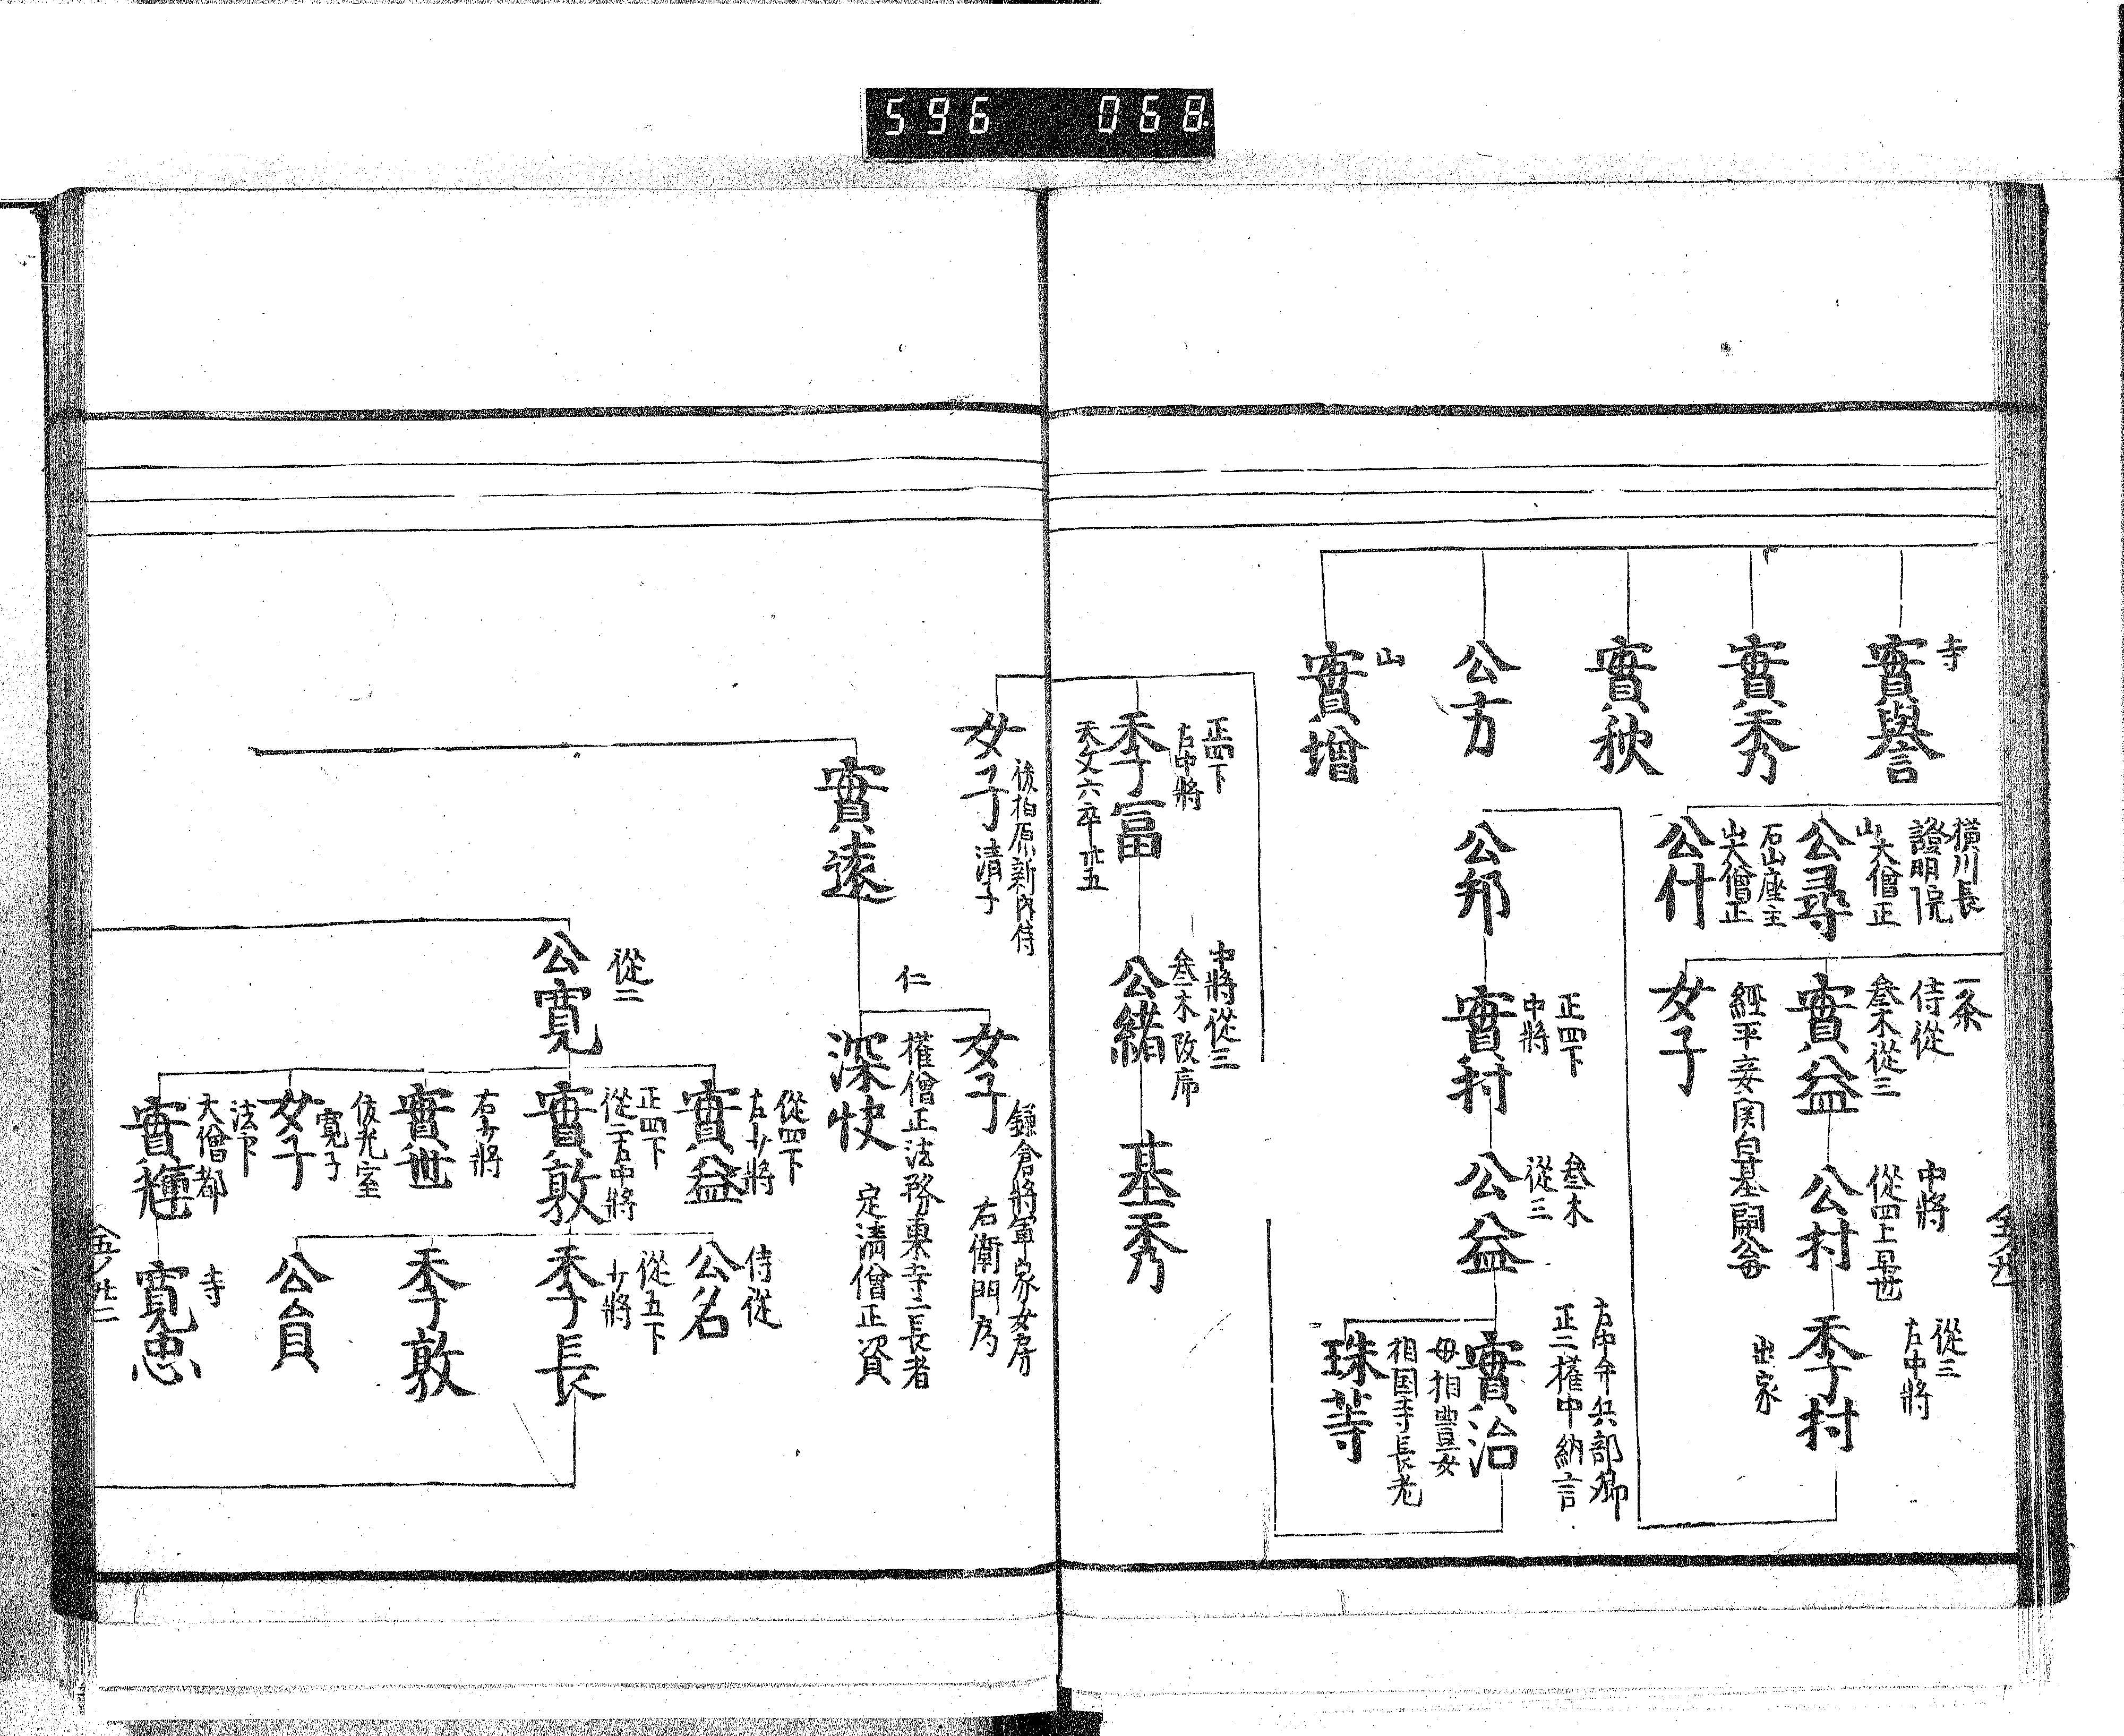 596 068
寺
實譽
實秀
實秋
公方
山
實增
横川長
證明院
山大僧正
公尋
石山座主
山大僧正
公什
一条
侍從
叄木從三
實益
中將
從四上早世
公村
從三
左中將
季村
出家
經平妾関白基嗣公母
女子
公邦
正四下
中將
實村
叄木
從三
公益
左中弁兵部卿
正二權中納言
實治
母相豊女
相国寺長老
珠荨
正四下
右中將
季冨
天文六卒廿五
中將從三
叄木改席
公緒
基秀
後柏原新内侍
女子清子
實遠
鎌倉將軍家女房
右衛門局
女子
仁
權僧正法務東寺二長者
定済僧正資
深快
從二
公寛
從四下
左少將
實益
正四下
從二右中將
實敦
右少將
實世
俊光室
寛子
女子
法下
大僧都
實輝
侍從
公名
從五下
少將
季長
季敦
公員
寺
寛忠